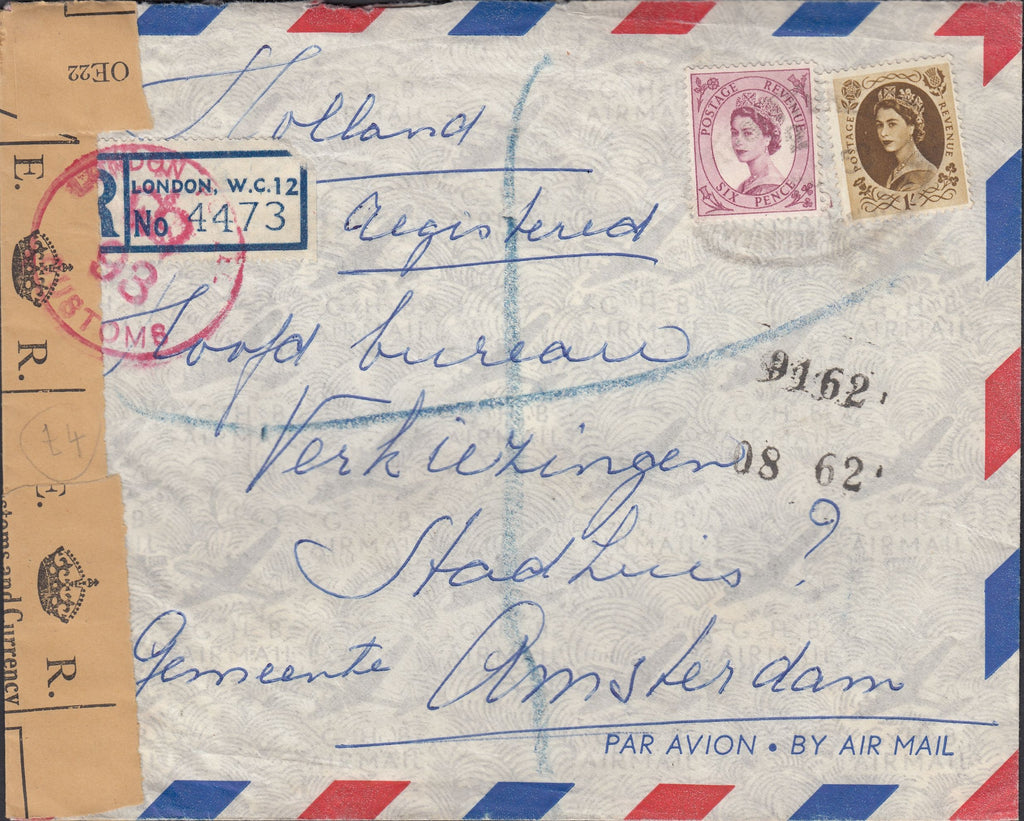 OE22
Holland
E.
R
LONDON, W.C.12
No 4473
LONDON
93
CUSTOMS
POSTAGE REVENUE
SIX PENCE
POSTAGE REVENUE
1/-
Registered
R.
Hoofd bureau
9162.
£4
Verkiezingen
08 62.
E.
Stadhuis ?
Customs and Currency
R.
Gemeente Amsterdam
PAR AVION • BY AIR MAIL
G H B
AIRMAIL